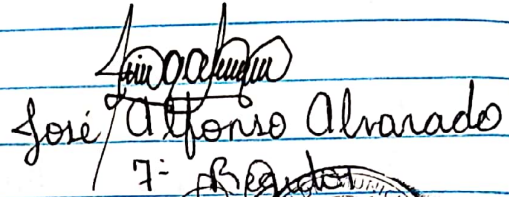 José Alfonso Alvarado
7- Regidor